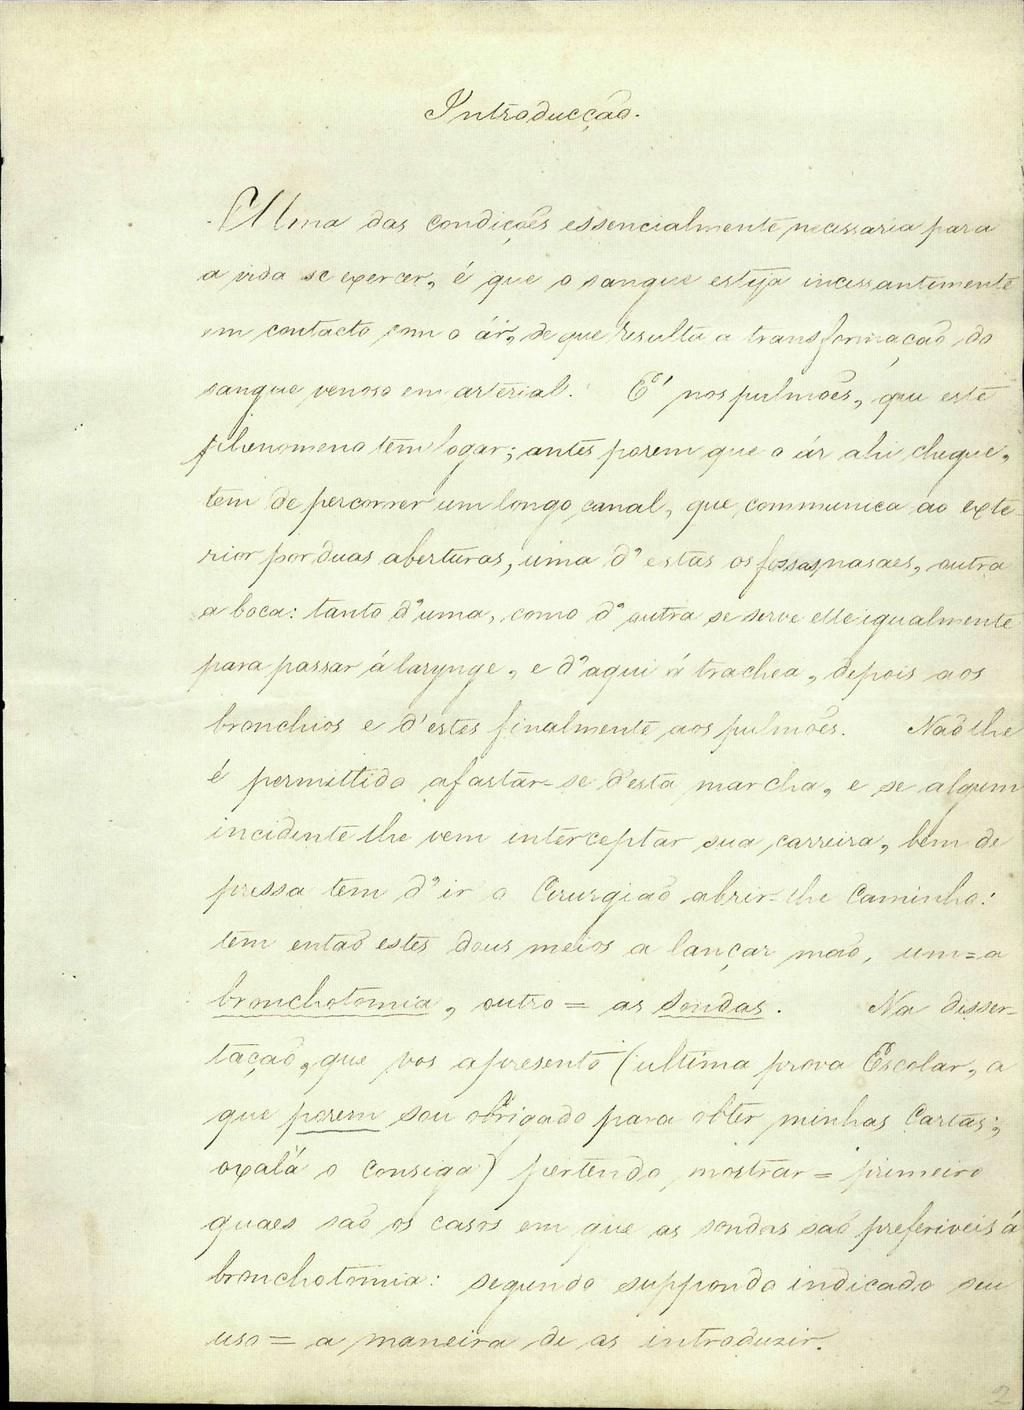 Introducção.
Uma das condições essencialmente necessaria para
a vida se exercer, é que o sangue esteja incessantemente
em contacto com o ár, de que resulta a transformação do
sangue venoso em arterial. É nos pulmões, que este
phenomeno tem logar; antes porem que o ár ahi chegue,
tem de percorrer um longo canal, que communica ao exte-
rior por duas aberturas, uma d'estas os fossas nasaes, outra
a boca: tanto d'uma, como d'outra se serve elle igualmente
para passar á larynge, e d'aqui á trachea, depois aos
bronchios e d'estes finalmente aos pulmões. Não lhe
é permittido afastar-se d'esta marcha, e se algum
incidente lhe vem interceptar sua carreira, bem de
pressa tem d'ir o Cirurgião abrir-lhe caminho:
tem então estes dous meios a lançar mão, um = a
bronchotomia, outro = as sondas. Na disser-
tação, que vos apresento (ultima prova Escolar, a
que porem sou obrigado para obter minhas Cartas;
oxalá o consiga) pertendo mostrar = primeiro
quaes são os casos em que as sondas são preferiveis á
bronchotomia: segundo suppondo indicado seu
uso = a maneira de as introduzir.
2